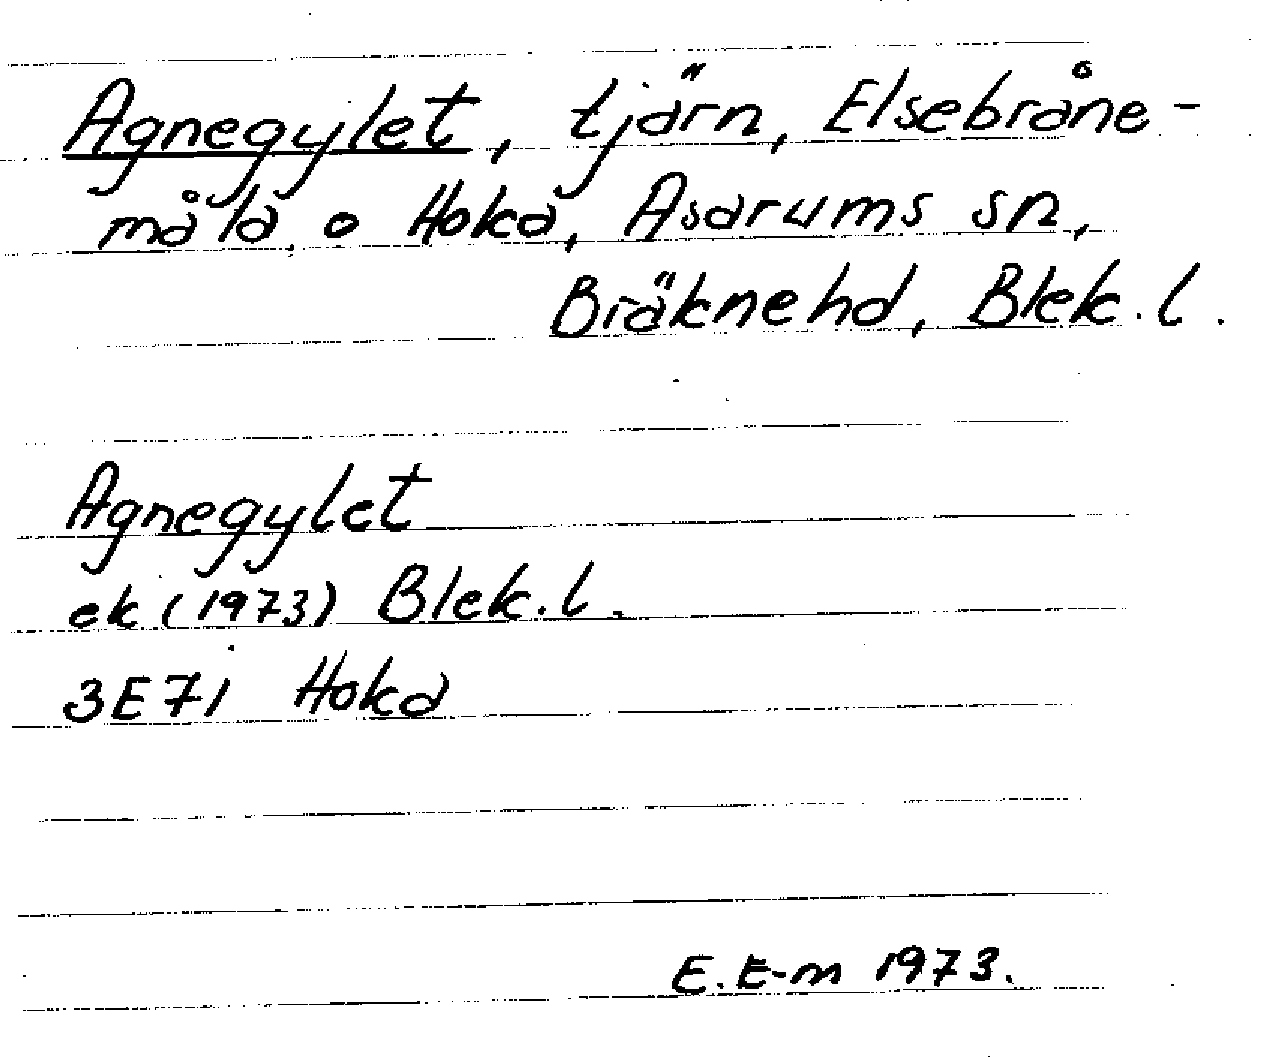 Agnegylet, tjärn, Elsebråne-
måla, o Hoka, Asarums sn,
Bräknehd, Blek. l.
Agnegylet
ek (1973) Blek. l.
3E7i Hoka
E. E-m 1973.